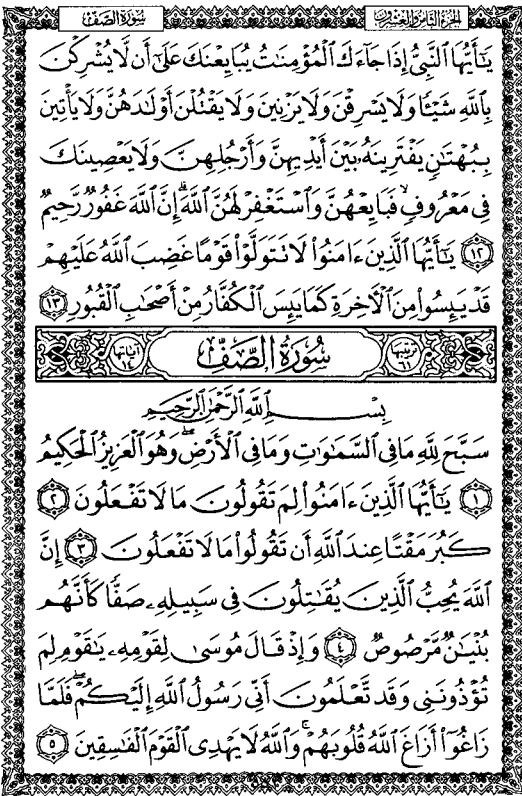 الجزء الثامن والعشرون سورة الصف
يَٰٓأَيُّهَا ٱلنَّبِىُّ إِذَا جَآءَكَ ٱلْمُؤْمِنَٰتُ يُبَايِعْنَكَ عَلَىٰٓ أَن لَّا يُشْرِكْنَ
بِٱللَّهِ شَيْـًٔا وَلَا يَسْرِقْنَ وَلَا يَزْنِينَ وَلَا يَقْتُلْنَ أَوْلَٰدَهُنَّ وَلَا يَأْتِينَ
بِبُهْتَٰنٍ يَفْتَرِينَهُۥ بَيْنَ أَيْدِيهِنَّ وَأَرْجُلِهِنَّ وَلَا يَعْصِينَكَ
فِى مَعْرُوفٍ ۙ فَبَايِعْهُنَّ وَٱسْتَغْفِرْ لَهُنَّ ٱللَّهَ ۖ إِنَّ ٱللَّهَ غَفُورٌ رَّحِيمٌ
١٢ يَٰٓأَيُّهَا ٱلَّذِينَ ءَامَنُوا۟ لَا تَتَوَلَّوْا۟ قَوْمًا غَضِبَ ٱللَّهُ عَلَيْهِمْ
قَدْ يَئِسُوا۟ مِنَ ٱلْـَٔاخِرَةِ كَمَا يَئِسَ ٱلْكُفَّارُ مِنْ أَصْحَٰبِ ٱلْقُبُورِ ١٣
ترتيبها ٦١ سُورَةُ الصَّفِّ آياتها ١٤
بِسْمِ ٱللَّهِ ٱلرَّحْمَٰنِ ٱلرَّحِيمِ
سَبَّحَ لِلَّهِ مَا فِى ٱلسَّمَٰوَٰتِ وَمَا فِى ٱلْأَرْضِ ۖ وَهُوَ ٱلْعَزِيزُ ٱلْحَكِيمُ
١ يَٰٓأَيُّهَا ٱلَّذِينَ ءَامَنُوا۟ لِمَ تَقُولُونَ مَا لَا تَفْعَلُونَ ٢
كَبُرَ مَقْتًا عِندَ ٱللَّهِ أَن تَقُولُوا۟ مَا لَا تَفْعَلُونَ ٣ إِنَّ
ٱللَّهَ يُحِبُّ ٱلَّذِينَ يُقَٰتِلُونَ فِى سَبِيلِهِۦ صَفًّا كَأَنَّهُم
بُنْيَٰنٌ مَّرْصُوصٌ ٤ وَإِذْ قَالَ مُوسَىٰ لِقَوْمِهِۦ يَٰقَوْمِ لِمَ
تُؤْذُونَنِى وَقَد تَّعْلَمُونَ أَنِّى رَسُولُ ٱللَّهِ إِلَيْكُمْ ۖ فَلَمَّا
زَاغُوٓا۟ أَزَاغَ ٱللَّهُ قُلُوبَهُمْ ۚ وَٱللَّهُ لَا يَهْدِى ٱلْقَوْمَ ٱلْفَٰسِقِينَ ٥